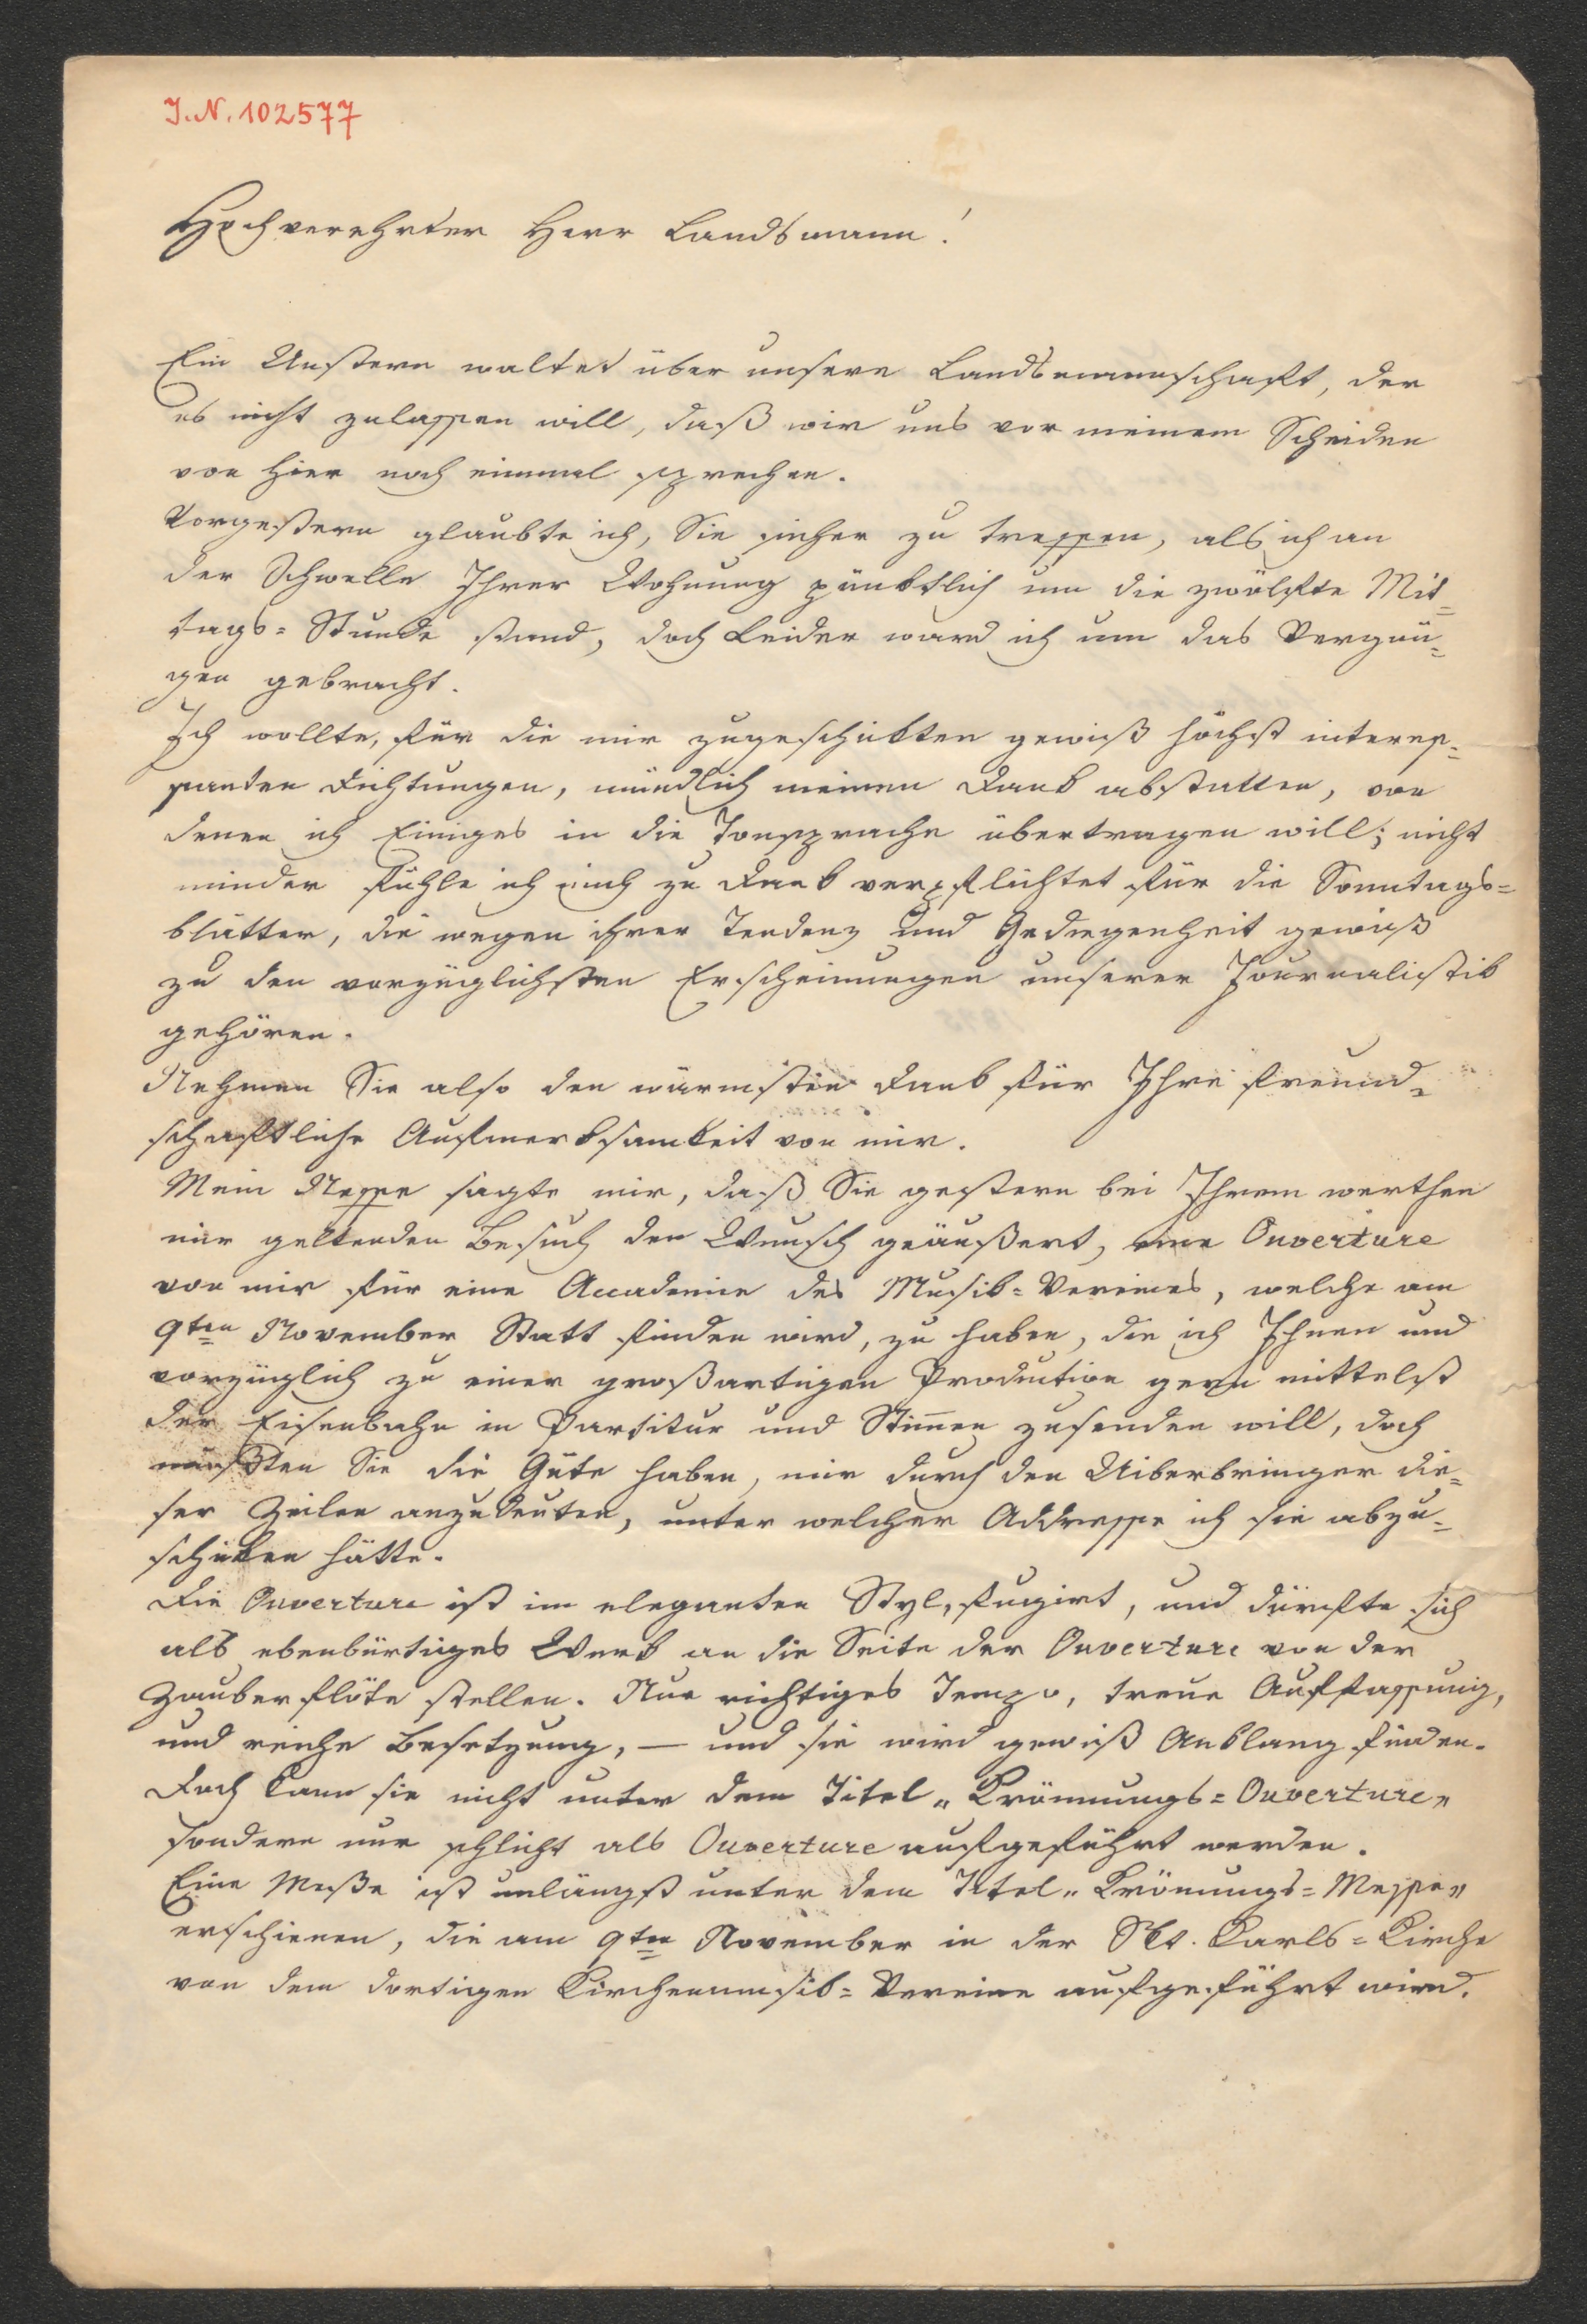 J.N. 102577
Hochverehrter Herr Landsmann!
Ein Unstern waltet über unsere Landsmannschaft, der
es nicht zulassen will, daß wir uns vor meinem Scheiden
von hier noch einmal sprechen.
Vorgestern glaubte ich, Sie sicher zu treffen, als ich an
der Schwelle Ihrer Wohnung pünktlich um die zwölfte Mit=
tags=Stunde stand, doch leider ward ich um das Vergnü=
gen gebracht.
Ich wollte, für die mir zugeschikten gewiß höchst interes=
santen Dichtungen, mündlich meinen Dank abstatten, von
denen ich Einiges in die Tonsprache übertragen will; nicht
minder fühle ich mich zu Dank verpflichtet für die Sonntags=
blätter, die wegen ihrer Tendenz und Gediegenheit gewiß
zu den vorzüglichsten Erscheinungen unserer Journalistik
gehören.
Nehmen Sie also den wärmsten Dank für Ihre freund=
schaftliche Aufmerksamkeit von mir.
Mein Neffe sagte mir, daß Sie gestern bei Ihrem werthen
mir geltenden Besuch den Wunsch geäußert, eine Ouverture
von mir für eine Accademie des Musik=Vereines, welche am
9ten November Statt finden wird, zu haben, die ich Ihnen und
vorzüglich zu einer großartigen Production gern mittelst
der Eisenbahn in Partitur und Stimen zusenden will, doch
müßten Sie die Güte haben, mir durch den Uiberbringer die=
ser Zeilen anzudeuten, unter welcher Addresse ich sie abzu=
schiken hätte.
Die Ouverture ist im eleganten Styl, fugirt, und dürfte sich
als ebenbürtiges Werk an die Seite der Ouverture von der
Zauberflöte stellen. Nur richtiges Tempo, treue Auffassung,
und reiche Besetzung, — und sie wird gewiß Anklang finden.
Doch kann sie nicht unter dem Titel „Krönungs=Ouverture„
sondern nur schlicht als Ouverture aufgeführt werden.
Eine Meße ist unlängst unter dem Titel „Krönungs=Messe„
erschienen, die am 9ten November in der Skt. Karls=Kirche
von dem dortigen Kirchenmusik=Vereine aufgeführt wird.